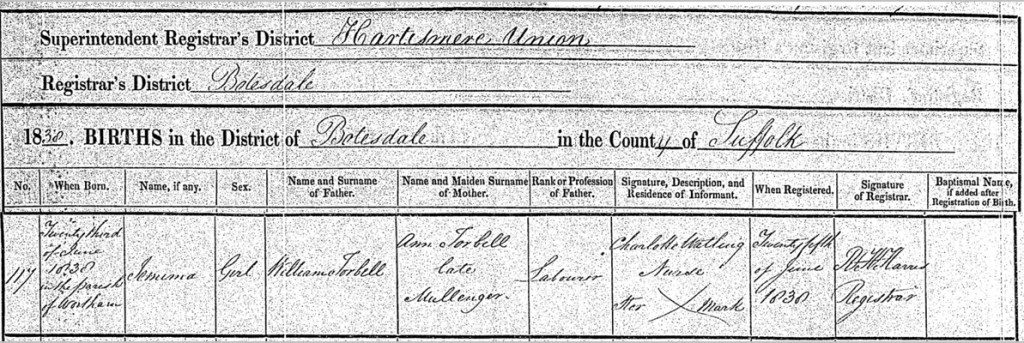 Superintendent Registrar's District Hartismere Union
Registrar's District Botesdale
1838. BIRTHS in the District of Botesdale in the County of Suffolk
No.
When Born.
Name, if any.
Sex.
Name and Surname
of Father.
Name and Maiden Surname
of Mother.
Rank or Profession
of Father.
Signature, Description, and
Residence of Informant.
When Registered.
Signature
of Registrar.
Baptismal Name,
if added after
Registration of Birth.
117
Twenty third
of June
1838
in the parish
of Wortham
Jemima
Girl
William Torbell
Ann Torbell
late
Mullenger
Labourer
Charlotte Watling
Nurse
Her X Mark
Twenty fifth
of June
1838
Harris
Registrar